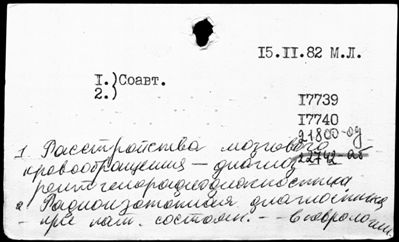 15.II.82 М.Л.
I.) Соавт.
2.)
I7739
I7740
21800-од
22742-аб
1 Расстройства мозгового
кровообращения — диагноз
рентгенорадиодиагностика
2 Радиоизотопная диагностика
- при пат. состоян. -